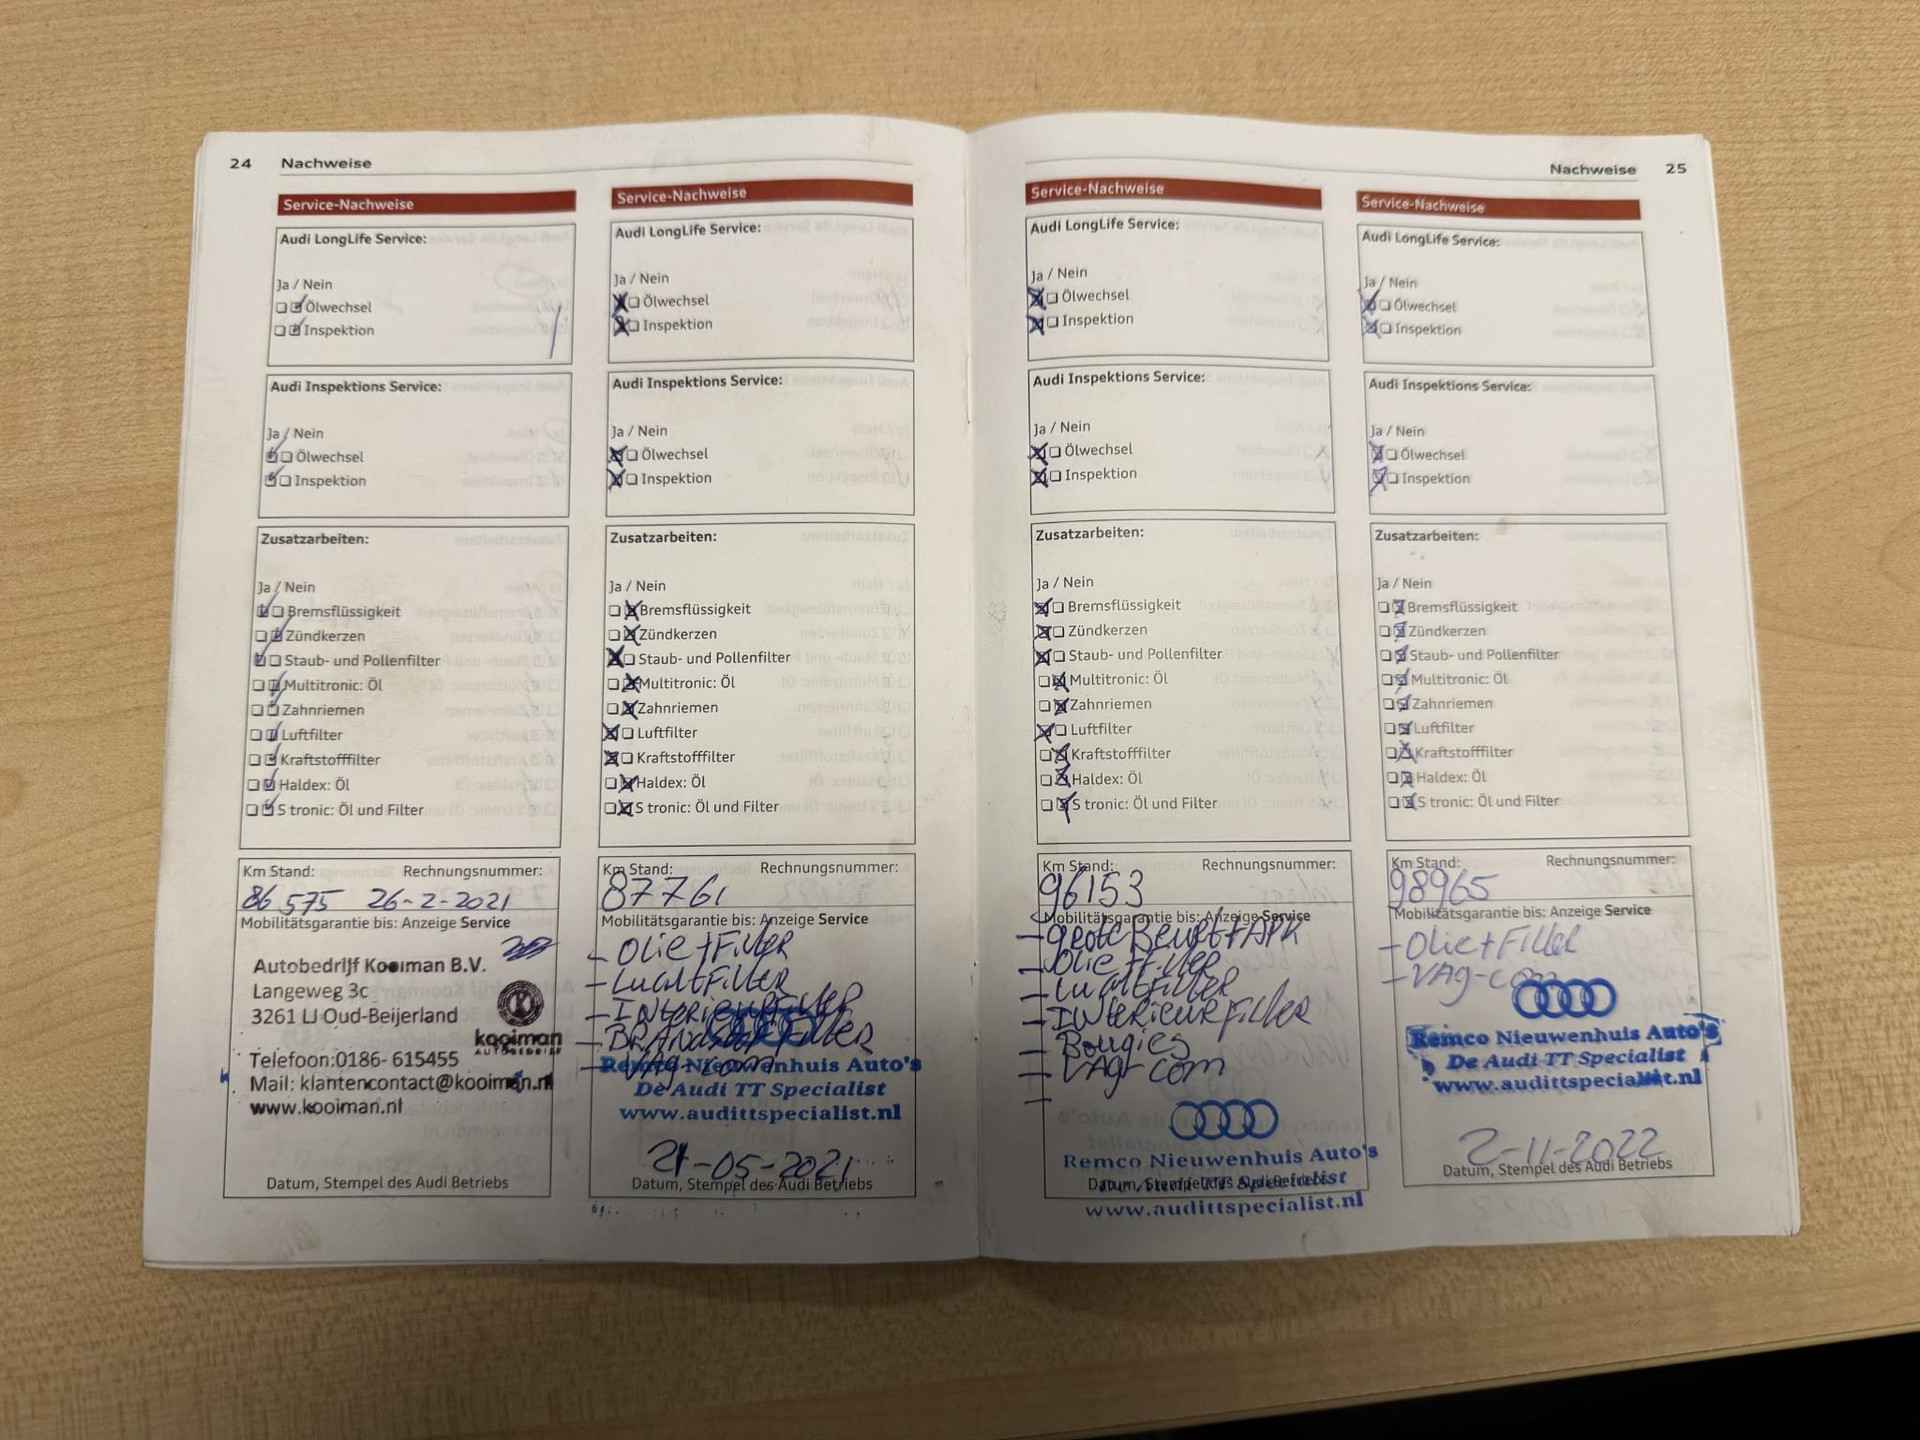 24 Nachweise
Service-Nachweise
Audi LongLife Service:
Ja / Nein
Ölwechsel
Inspektion
Audi Inspektions Service:
Ja / Nein
Ölwechsel
Inspektion
Zusatzarbeiten:
Ja / Nein
Bremsflüssigkeit
Zündkerzen
Staub- und Pollenfilter
Multitronic: Öl
Zahnriemen
Luftfilter
Kraftstofffilter
Haldex: Öl
S tronic: Öl und Filter
Km Stand: Rechnungsnummer:
86575 26-2-2021
Mobilitätsgarantie bis: Anzeige Service
Autobedrijf Kooiman B.V.
Langeweg 3c
3261 LJ Oud-Beijerland
kooiman
AUTOBEDRIJF
Telefoon:0186-615455
Mail: klantencontact@kooiman.nl
www.kooiman.nl
Datum, Stempel des Audi Betriebs
Service-Nachweise
Audi LongLife Service:
Ja / Nein
Ölwechsel
Inspektion
Audi Inspektions Service:
Ja / Nein
Ölwechsel
Inspektion
Zusatzarbeiten:
Ja / Nein
Bremsflüssigkeit
Zündkerzen
Staub- und Pollenfilter
Multitronic: Öl
Zahnriemen
Luftfilter
Kraftstofffilter
Haldex: Öl
S tronic: Öl und Filter
Km Stand: Rechnungsnummer:
87761
Mobilitätsgarantie bis: Anzeige Service
- Olie + Filter
- Luchtfilter
- Interieurfilter
- Brandstof Filter
- VAG-com
Remco Nieuwenhuis Auto's
De Audi TT Specialist
www.audittspecialist.nl
21-05-2021
Datum, Stempel des Audi Betriebs
Nachweise 25
Service-Nachweise
Audi LongLife Service:
Ja / Nein
Ölwechsel
Inspektion
Audi Inspektions Service:
Ja / Nein
Ölwechsel
Inspektion
Zusatzarbeiten:
Ja / Nein
Bremsflüssigkeit
Zündkerzen
Staub- und Pollenfilter
Multitronic: Öl
Zahnriemen
Luftfilter
Kraftstofffilter
Haldex: Öl
S tronic: Öl und Filter
Km Stand: Rechnungsnummer:
96153
Mobilitätsgarantie bis: Anzeige Service
- grote Beurt + APK
- Olie + Filter
- Luchtfilter
- Interieurfilter
- Bougies
- VAG-com
-
Remco Nieuwenhuis Auto's
De Audi TT Specialist
Datum, Stempel des Audi Betriebs
www.audittspecialist.nl
Service-Nachweise
Audi LongLife Service:
Ja / Nein
Ölwechsel
Inspektion
Audi Inspektions Service:
Ja / Nein
Ölwechsel
Inspektion
Zusatzarbeiten:
Ja / Nein
Bremsflüssigkeit
Zündkerzen
Staub- und Pollenfilter
Multitronic: Öl
Zahnriemen
Luftfilter
Kraftstofffilter
Haldex: Öl
S tronic: Öl und Filter
Km Stand: Rechnungsnummer:
98965
Mobilitätsgarantie bis: Anzeige Service
- Olie + Filter
- VAG-com
Remco Nieuwenhuis Auto's
De Audi TT Specialist
www.audittspecialist.nl
2-11-2022
Datum, Stempel des Audi Betriebs